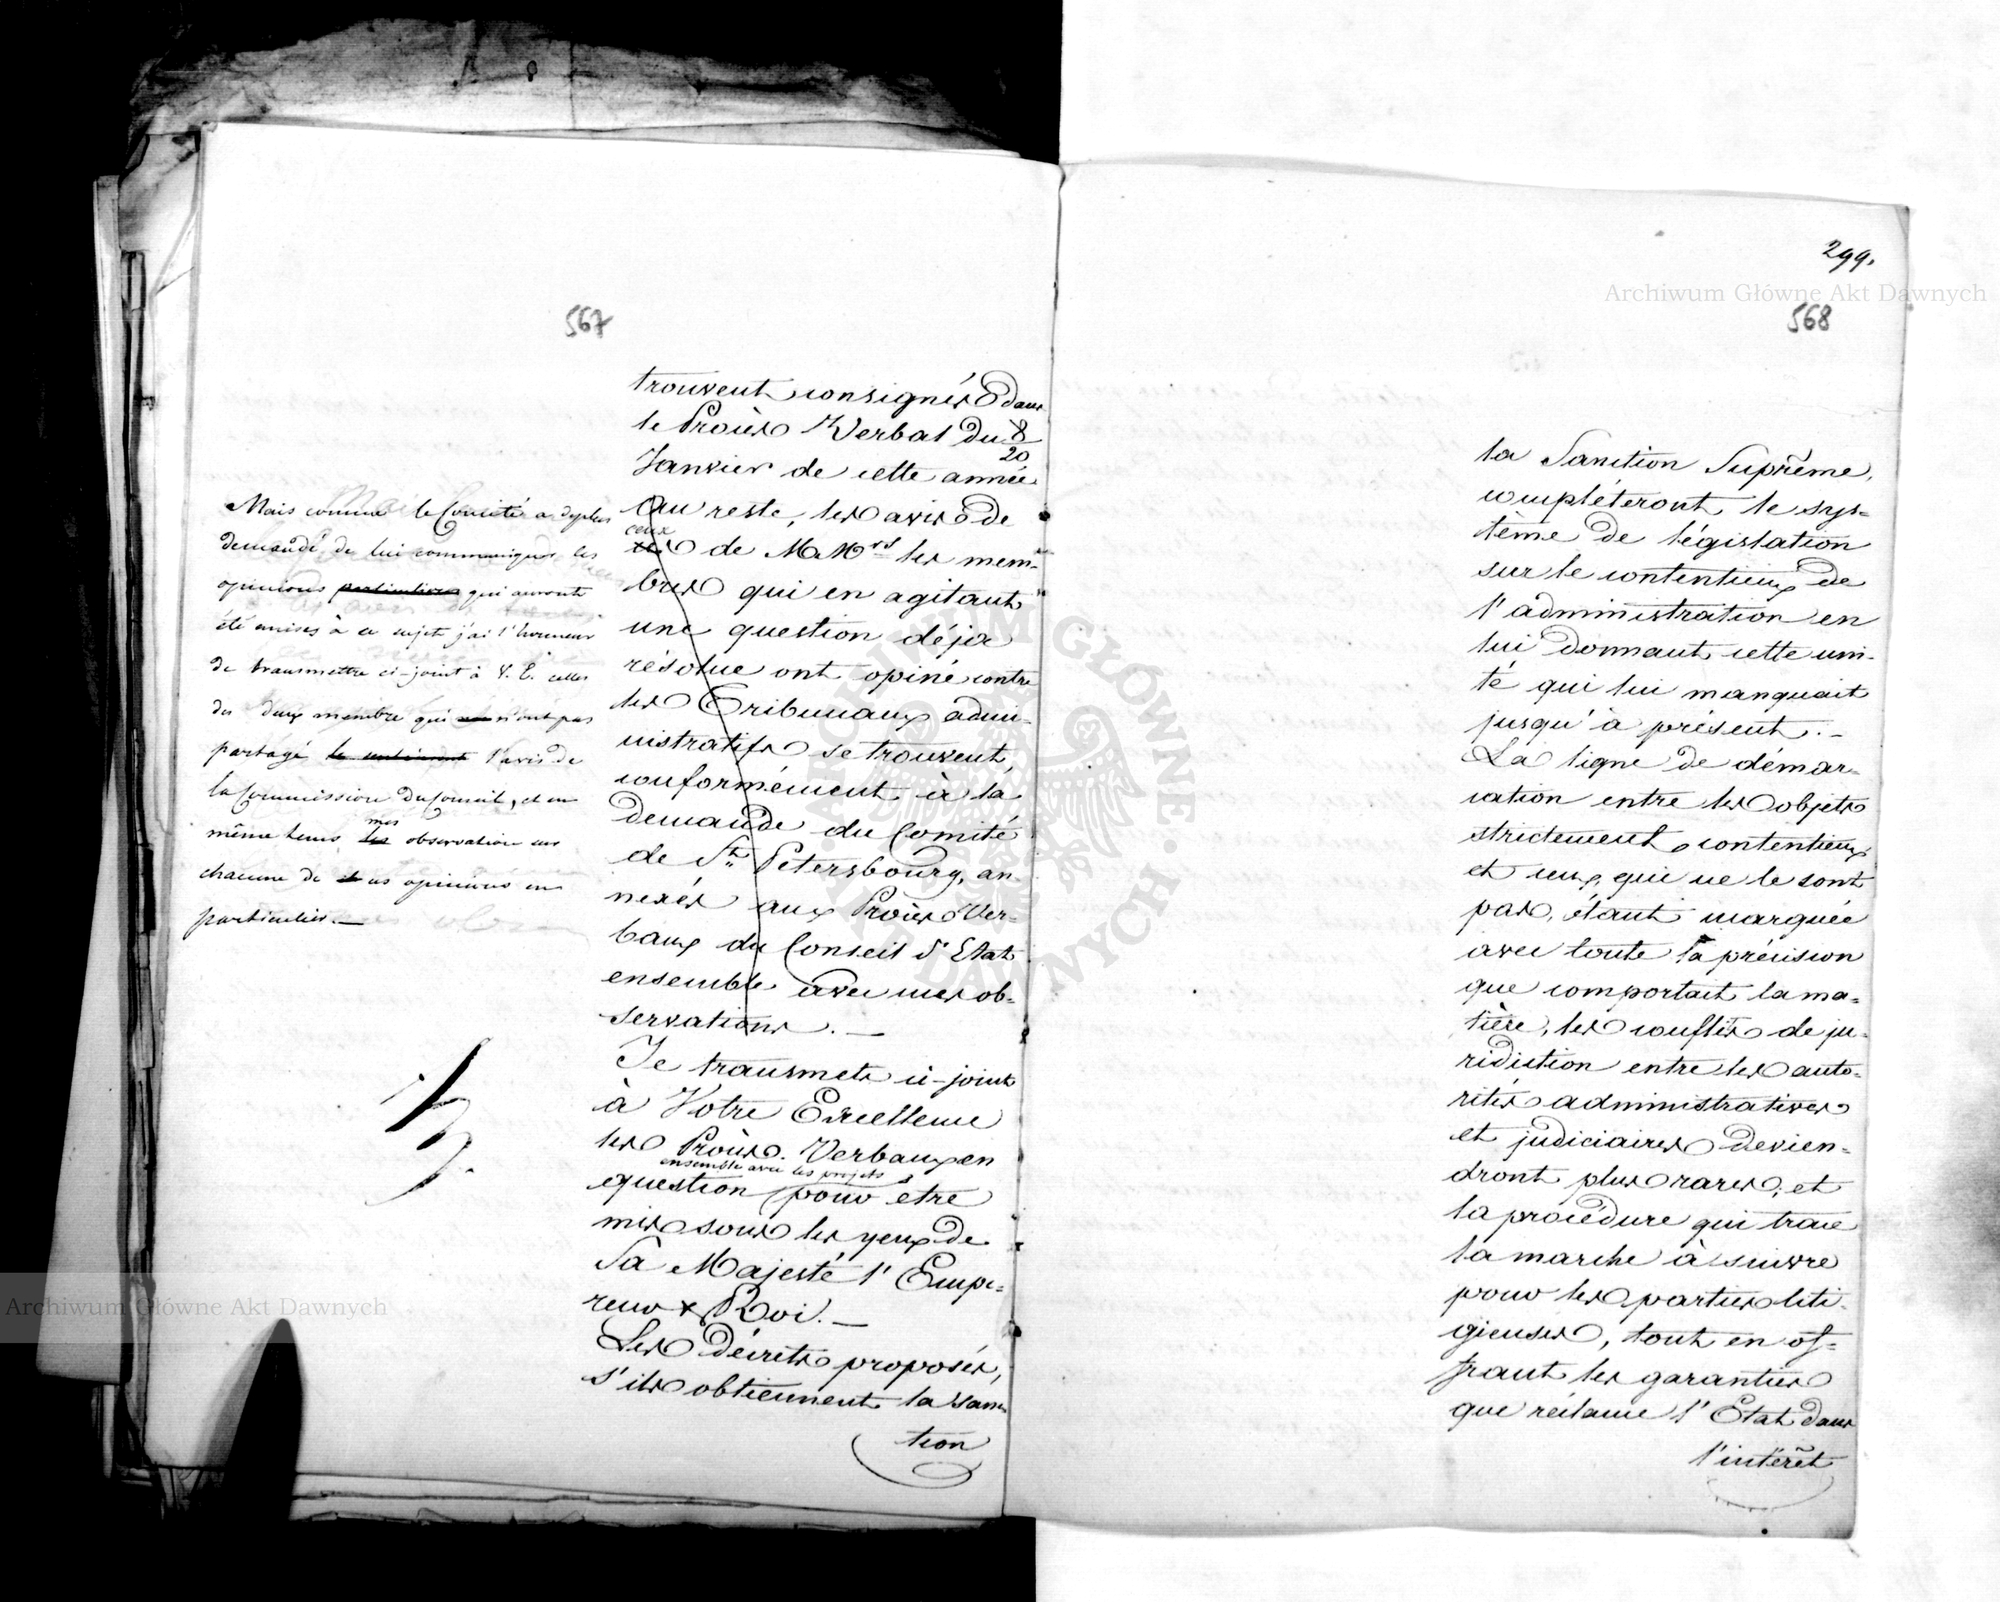 567
trouvent consignés dans
le Procès Verbal du 8/20
Janvier de cette année
Au reste, les avis de
ceux
de M.Mrs les mem-
bres qui en agitant
une question déja
résolue ont opiné contre
les Tribunaux admi-
nistratifs se trouvent,
conformément à la
demande du Comité
de St. Petersbourg, an-
nexés aux Procès Ver-
baux du Conseil d'Etat
ensemble avec mes ob-
servations. —
Je transmets ci-joint
à Votre Excellence
les Procès-Verbaux en
ensemble avec les projets
question pour etre
mis sous les yeux de
Sa Majesté l'Empe-
reur & Roi. —
Les Décrets proposés,
s'ils obtiennent la Sanc-
tion
Mais comme le Comité a de plus
demandé de lui communiquer les
opinions particulières qui auront
été emises à ce sujet j'ai l'honneur
de transmettre ci-joint à V. E. celles
des deux membre qui n'ont pas
partagé le sentiment l'avis de
la Commission du Conseil, et en
mes
même tems les observation sur
chacune de ces opinions en
particulier. —
299.
568
la Sanction Suprême,
complèteront le sys-
tème de législation
sur le contentieux de
l'administration en
lui donnant cette uni-
té qui lui manquait
jusqu'à présent. —
La ligne de démar-
cation entre les objets
strictement contentieux
et ceux, qui ne le sont
pas, étant marquée
avec toute la précision
que comportait la ma-
tière, les conflits de ju-
ridiction entre les auto-
rités administratives
et judiciaires devien-
dront plus rares, et
la procédure qui trace
la marche à suivre
pour les parties liti-
gieuses, tout en of-
frant les garanties
que réclame l'Etat dans
l'intérêt
Archiwum Główne Akt Dawnych
Archiwum Główne Akt Dawnych
ARCHIWUM GŁÓWNE AKT DAWNYCH